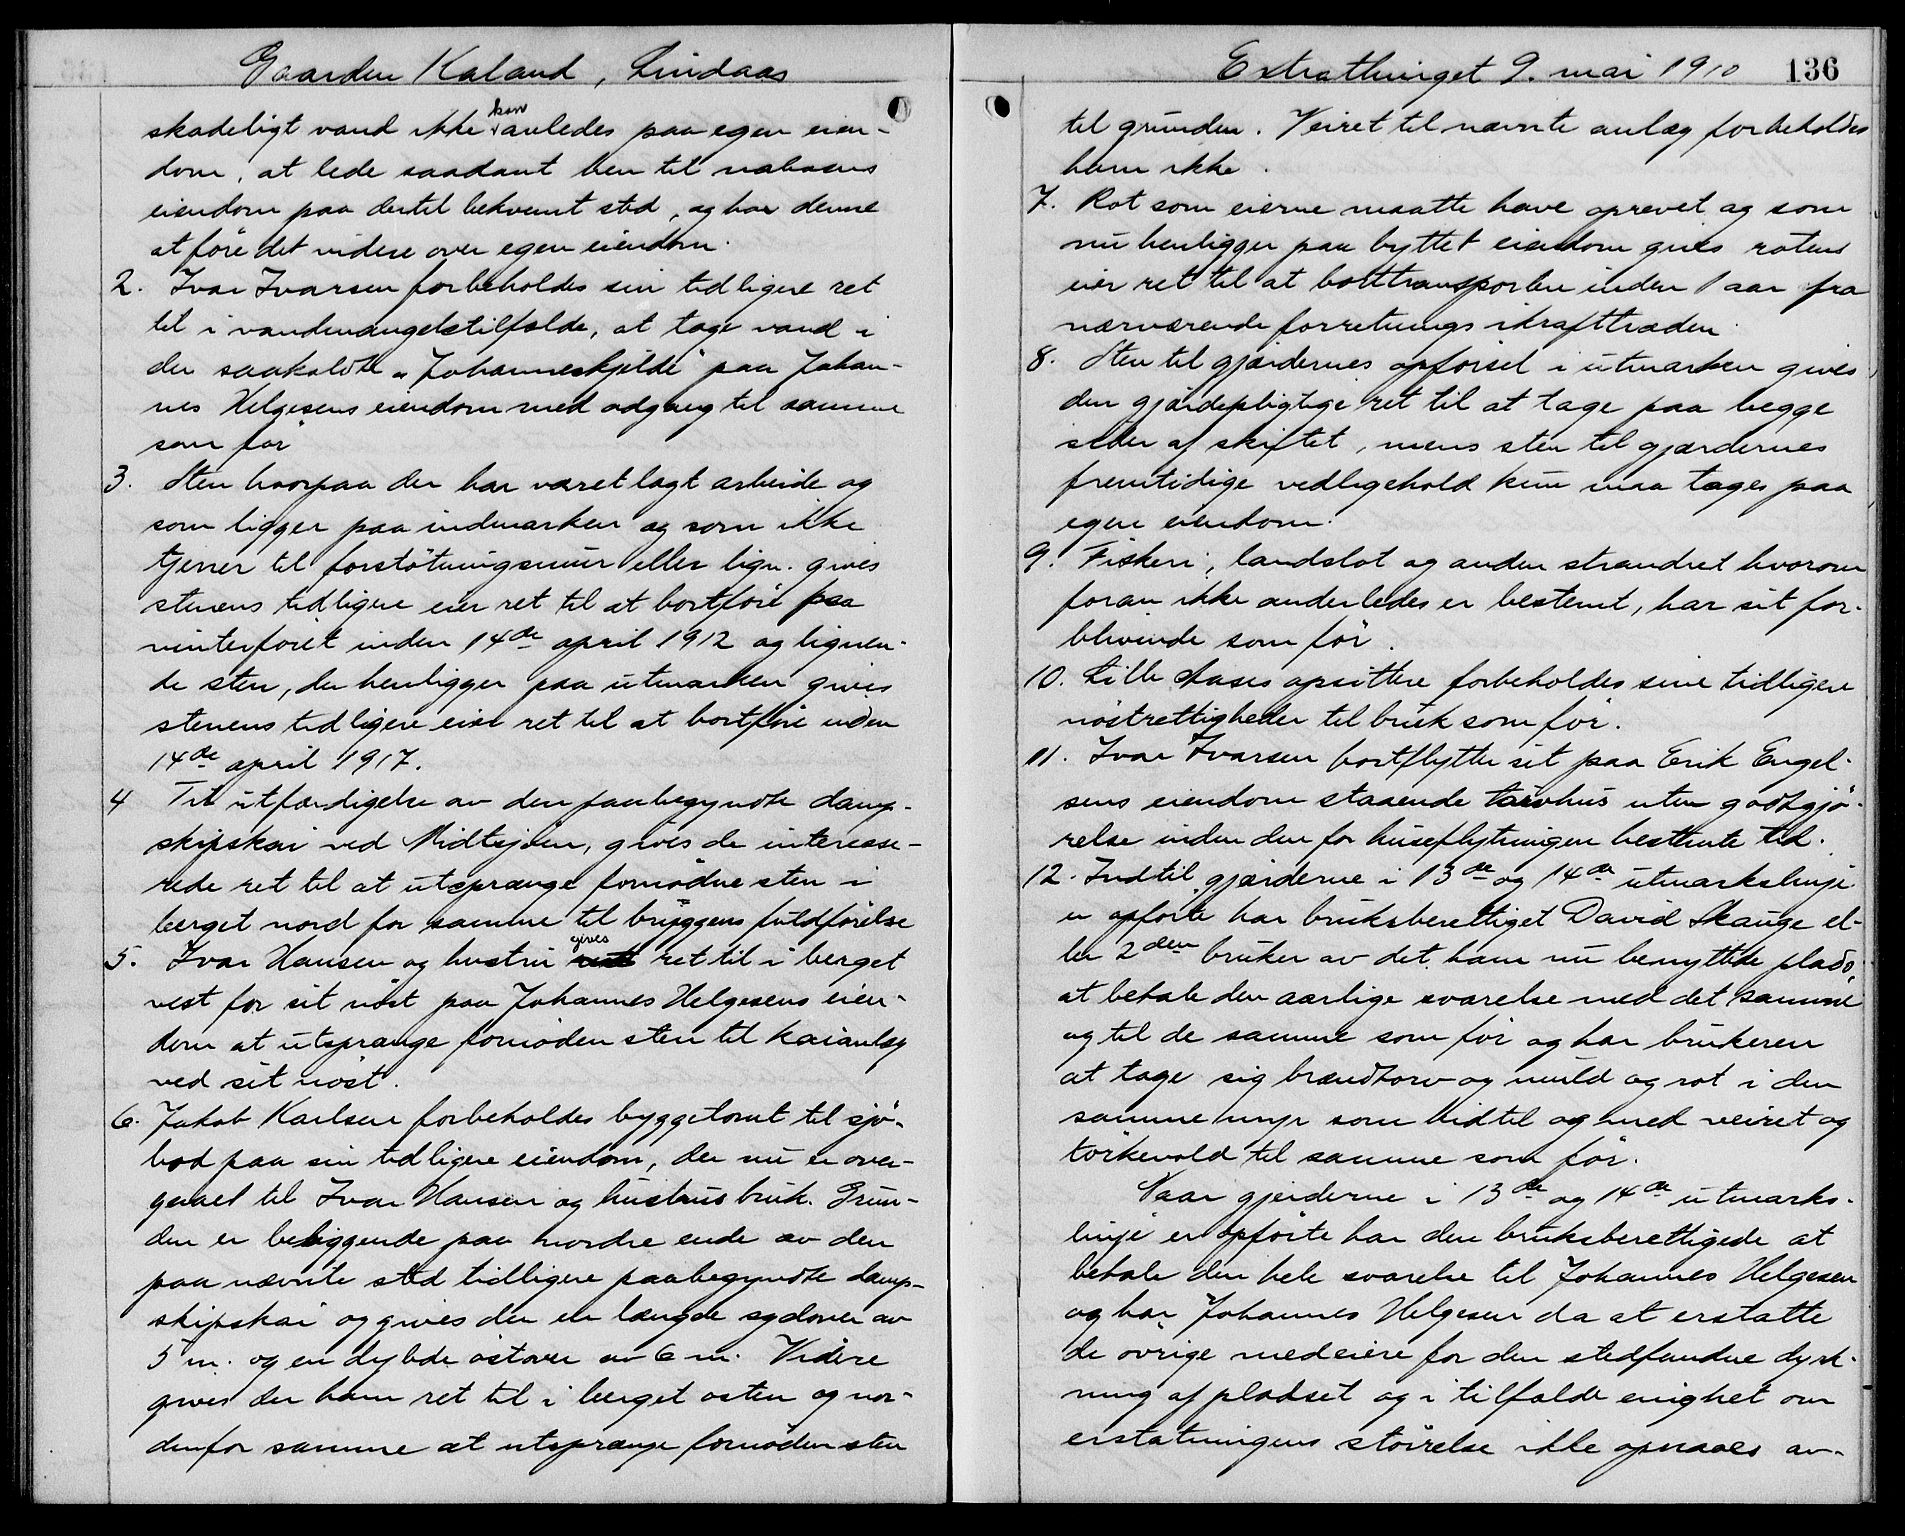 Gaarden Kaland, Lindaas
skadeligt vand ikke kan avledes paa egen eien-
dom, at lede saadant hen til naboens
eiendom paa dertil bekvemt sted, og har denne
at føre det videre over egen eiendom.
2. Ivar Ivarsen forbeholdes sin tidligere ret
til i vandmangelstilfælde, at tage vand i
den saakaldte „Johanneskjelde" paa Johan-
nes Helgesens eiendom med adgang til samme
som før
3. Sten hvorpaa der har været lagt arbeide og
som ligger paa indmarken og som ikke
tjener til forstøtningsmur eller lign. gives
stenens tidligere eier ret til at bortføre paa
vinterføret inden 14de april 1912 og lignen-
de sten, der henligger paa utmarken gives
stenens tidligere eier ret til at bortføre inden
14de april 1917.
4 Til utfærdigelse av den paabegyndte damp-
skipskai ved Midtsjøen, gives de interesse-
rede ret til at utsprænge fornødne sten i
berget nord for samme til bryggens fuldførelse
5. Ivar Hansen og hustru gives ret til i berget
vest for sit nøst paa Johannes Helgesens eien-
dom at utsprænge fornøden sten til kaianlæg
ved sit nøst.
6. Jakob Karlsen forbeholdes byggetomt til sjø-
bod paa sin tidligere eiendom, der nu er over-
gaaet til Ivar Hansen og hustrus bruk. Grun-
den er beliggende paa nordre ende av den
paa nævnte sted tidligere paabegyndte damp-
skipskai og gives den en længde sydover av
5 m. og en dybde østover av 6 m. Videre
gives der ham ret til i berget østen og nor-
denfor samme at utsprænge fornøden sten
Extrathinget 9. mai 1910 136
til grunden. Veiret til nævnte anlæg forbeholdes
ham ikke.
7. Rot som eierne maatte have oprevet og som
nu henligger paa byttet eiendom gives rotens
eier ret til at borttransportere inden 1 aar fra
nærværende forretnings ikrafttræden.
8. Sten til gjærdernes opførsel i utmarken gives
den gjærdepligtige ret til at tage paa begge
sider af skiftet, mens sten til gjærdernes
fremtidige vedligehold kun maa tages paa
egen eiendom.
9. Fiskeri, landslot og anden strandret hvorom
foran ikke anderledes er bestemt, har sit for-
blivende som før.
10. Lille Aases opsittere forbeholdes sine tidligere
nøstrettigheder til bruk som før.
11. Ivar Ivarsen bortflytter sit paa Erik Engel-
sens eiendom staaende torvhus uten godtgjø-
relse inden den for huseflytningen bestemte tid.
12. Indtil gjærderne i 13de og 14de utmarkslinje
er opførte har bruksberettiget David Skauge el-
ler 2den bruker av det ham nu benyttede plads,
at betale den aarlige svarelse med det samme
og til de samme som før og har brukeren
at tage sig brændtorv og muld og rot i den
samme myr som hidtil og med veiret og
tørkevold til samme som før.
Naar gjerderne i 13de og 14de utmarks-
linje er opførte har den bruksberettigede at
betale den hele svarelse til Johannes Helgesen
og har Johannes Helgesen da at erstatte
de øvrige medeiere for den stedfundne dyrk-
ning af pladset og i tilfælde enighet om
erstatningens størrelse ikke opnaaes av-